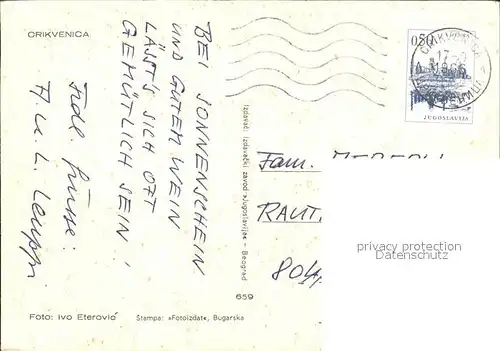 CRIKVENICA
BEI SONNENSCHEIN
UND GUTEM WEIN
LÄSST'S SICH OFT
GEMÜTLICH SEIN!
Frdl. Grüsse:
A. u. L. Leuppi
Izdavač: Izdavački zavod »Jugoslavija« – Beograd
659
Foto: Ivo Eterović
Štampa: »Fotoizdat«, Bugarska
0.50
JUGOSLAVIJA
CRIKVENICA
Fam.
RAUT
804
privacy protection
Datenschutz